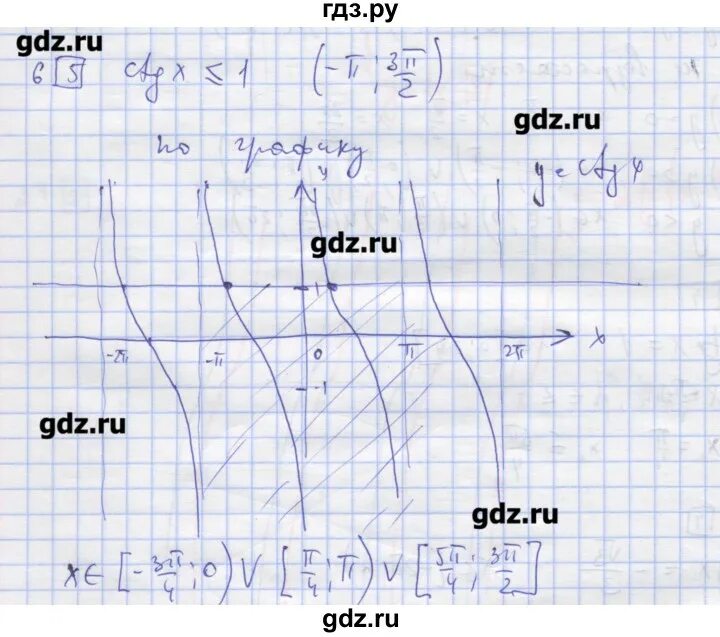 гдз.ру
gdz.ru
6 5 ctg x ≤ 1 (-π ; 3π/2)
gdz.ru
по графику
y y = ctg x
gdz.ru
1
-2π -π 0 π 2π x
-1
gdz.ru
gdz.ru
x ∈ [-3π/4 ; 0) ∨ [π/4 ; π) ∨ [5π/4 ; 3π/2]
gdz.ru